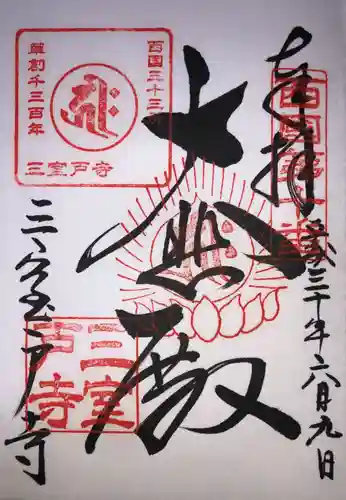 奉拝
西国第十番
平成三十年六月九日
大悲殿
三室戸寺
西国三十三
草創千三百年
三室戸寺
三室戸寺